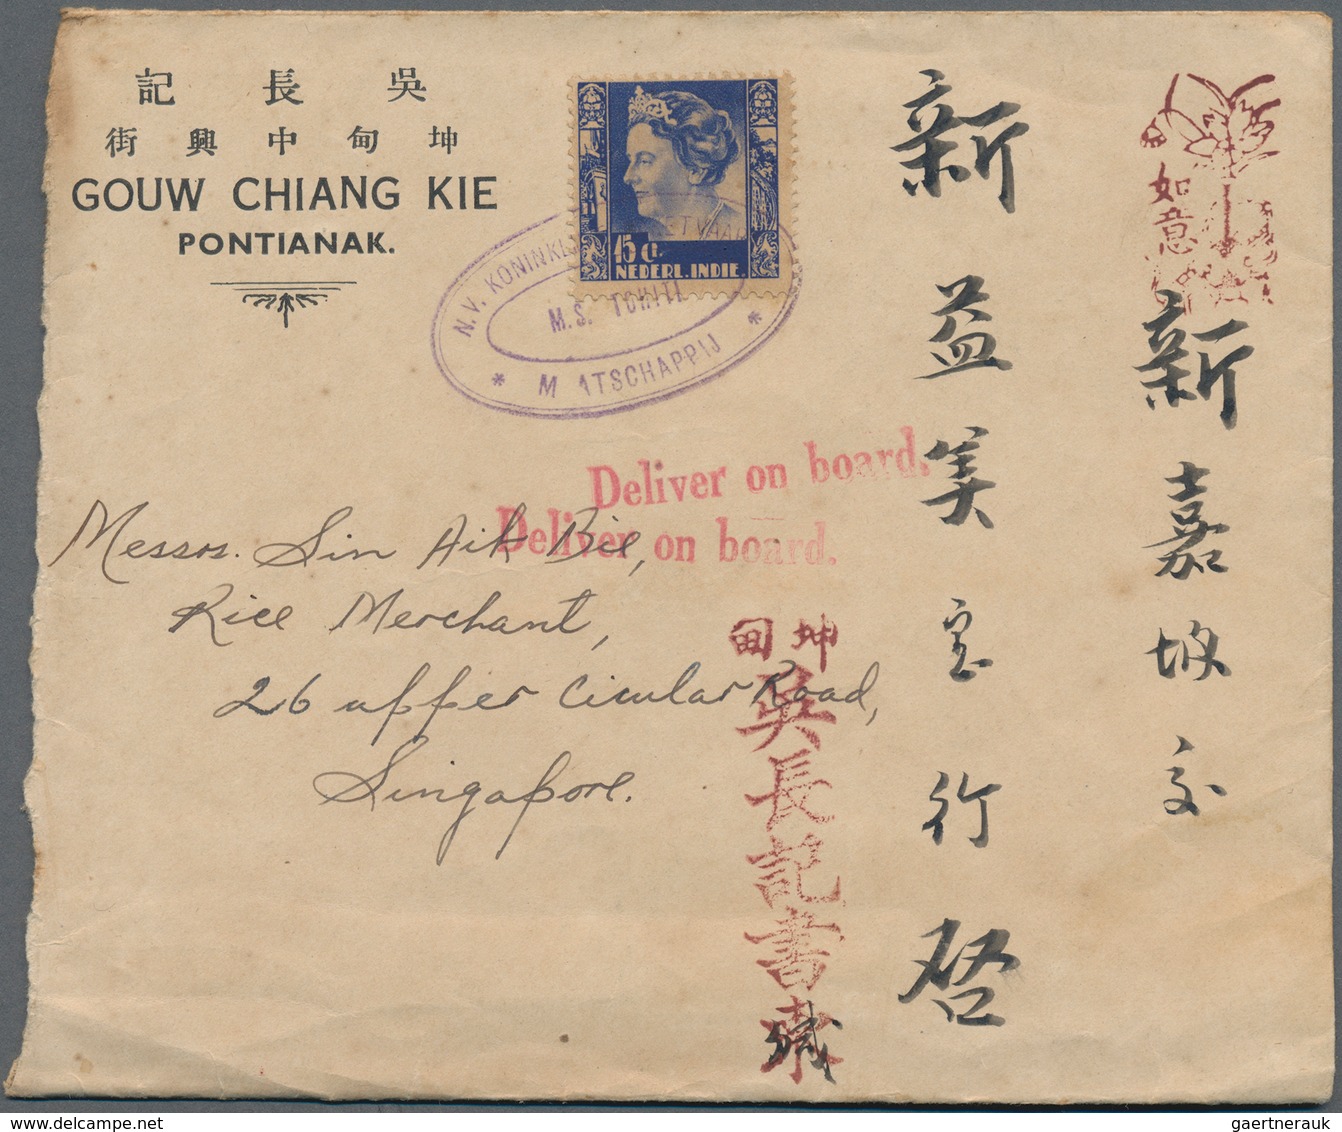 記 長 吳
街 興 中 甸 坤
GOUW CHIANG KIE
PONTIANAK.
15 ct.
NEDERL. INDIE.
N.V. KONINKL
ETVAAR
M.S. TOHITI
* M ATSCHAPPIJ *
Deliver on board.
Deliver on board.
Messrs. Sin Aik Bie,
Rice Merchant,
26 upper Circular Road,
Singapore.
如意
新嘉坡交
新益美宝行啓
甸 坤
吳長記書
gaertnerauk @ www.delcampe.net